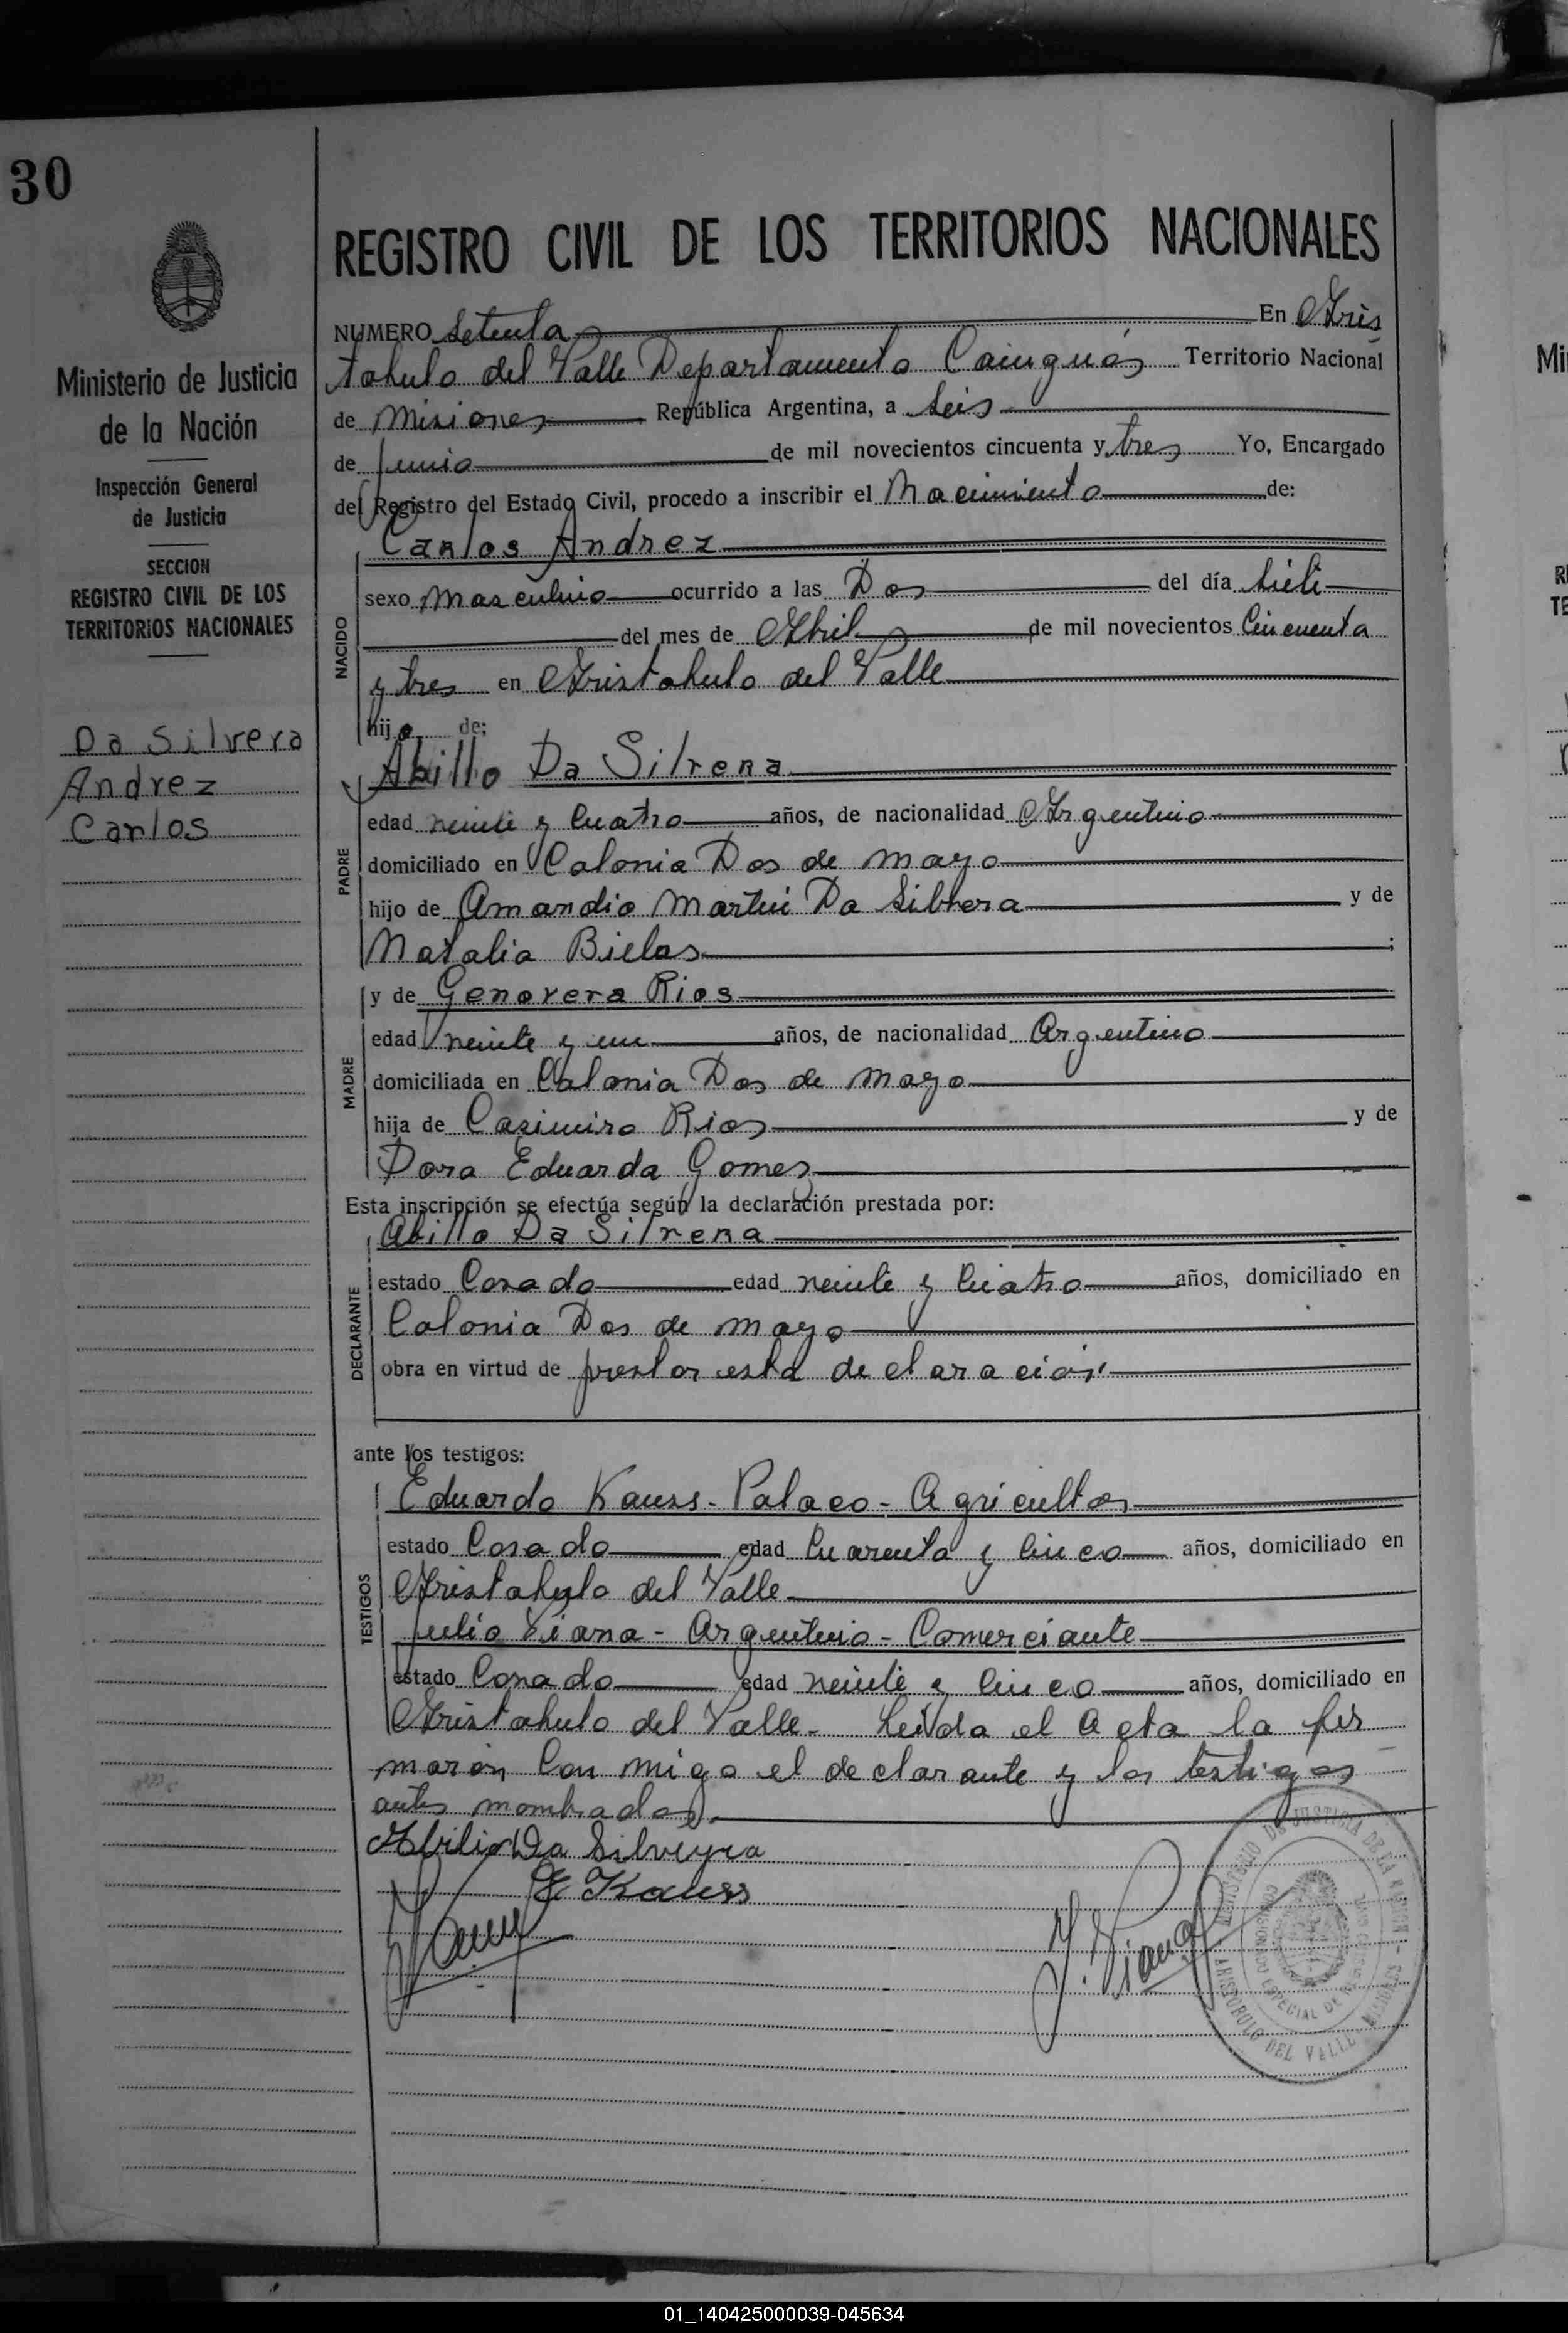 30
Ministerio de Justicia
de la Nación
Inspección General
de Justicia
SECCION
REGISTRO CIVIL DE LOS
TERRITORIOS NACIONALES
Da Silvera
Andrez
Carlos
REGISTRO CIVIL DE LOS TERRITORIOS NACIONALES
NUMERO Setenta En Aris
tobulo del Valle Departamento Cainguás Territorio Nacional
de Misiones República Argentina, a Seis
de junio de mil novecientos cincuenta y tres Yo, Encargado
del Registro del Estado Civil, procedo a inscribir el Nacimiento de:
Carlos Andrez
NACIDO
sexo Masculino ocurrido a las Dos del día Siete
del mes de Abril de mil novecientos Cincuenta
y tres en Aristobulo del Valle
hijo de:
Abillo Da Silvera
PADRE
edad veinte y Cuatro años, de nacionalidad Argentino
domiciliado en Colonia Dos de mayo
hijo de Amandio Martin Da Silvera y de
Natalia Bielas;
MADRE
y de Genovera Rios
edad veinte y un años, de nacionalidad Argentino
domiciliada en Colonia Dos de Mayo
hija de Casimiro Rios y de
Dora Eduarda Gomes
Esta inscripción se efectúa según la declaración prestada por:
Abillo Da Silvera
DECLARANTE
estado Casado edad veinte y Cuatro años, domiciliado en
Colonia Dos de mayo
obra en virtud de prestar esta declaración
ante los testigos:
Eduardo Kauss - Polaco - Agricultor
TESTIGOS
estado Casado edad Cuarenta y Cinco años, domiciliado en
Aristobulo del Valle
Julio Viana - Argentino - Comerciante
estado Casado edad veinte y Cinco años, domiciliado en
Aristobulo del Valle - Leida el Acta la fir
maron Con migo el declarante y los testigos
antes nombrados.
Abilio Da Silveyra
E Kauss
J. Viana
MINISTERIO DE JUSTICIA DE LA NACION
ARISTOBULO DEL VALLE - MISIONES
01_140425000039-045634